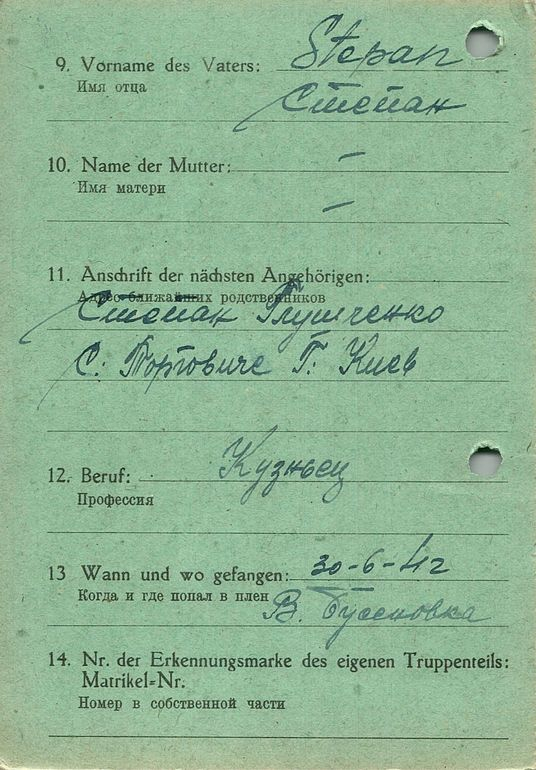 9. Vorname des Vaters: Stepan
Имя отца Степан
10. Name der Mutter: —
Имя матери —
11. Anschrift der nächsten Angehörigen:
Адрес ближайших родственников
Степан Глушченко
С. Торговиче Г. Киев
12. Beruf: Кузньец
Профессия
13 Wann und wo gefangen: 30-6-42
Когда и где попал в плен В.
14. Nr. der Erkennungsmarke des eigenen Truppenteils:
Matrikel=Nr.
Номер в собственной части